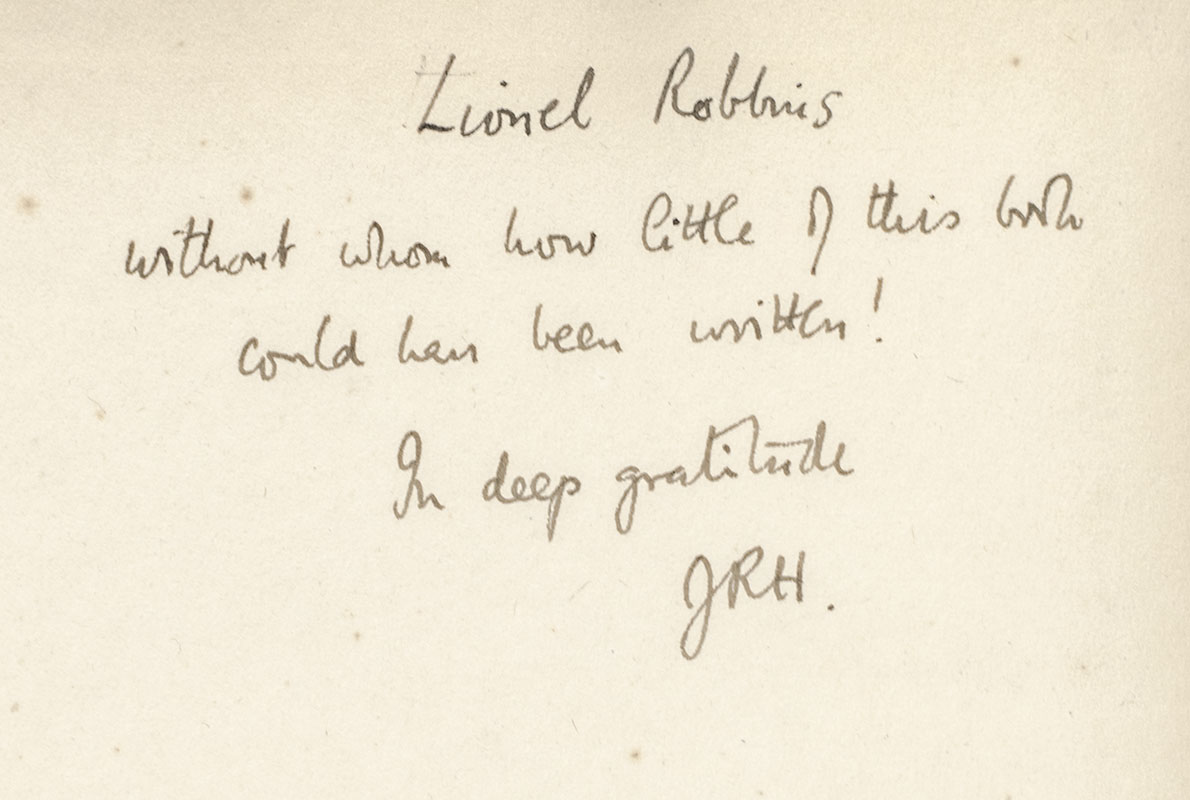 Lionel Robbins
without whom how little of this book
could have been written!
In deep gratitude
JRH.